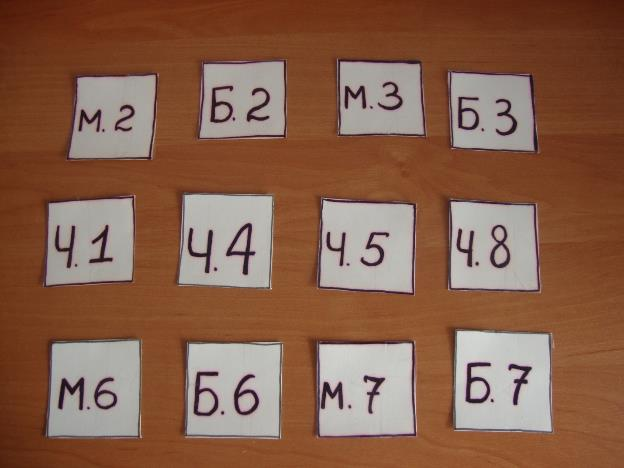 М.2 Б.2 М.3 Б.3
Ч.1 Ч.4 Ч.5 Ч.8
М.6 Б.6 М.7 Б.7